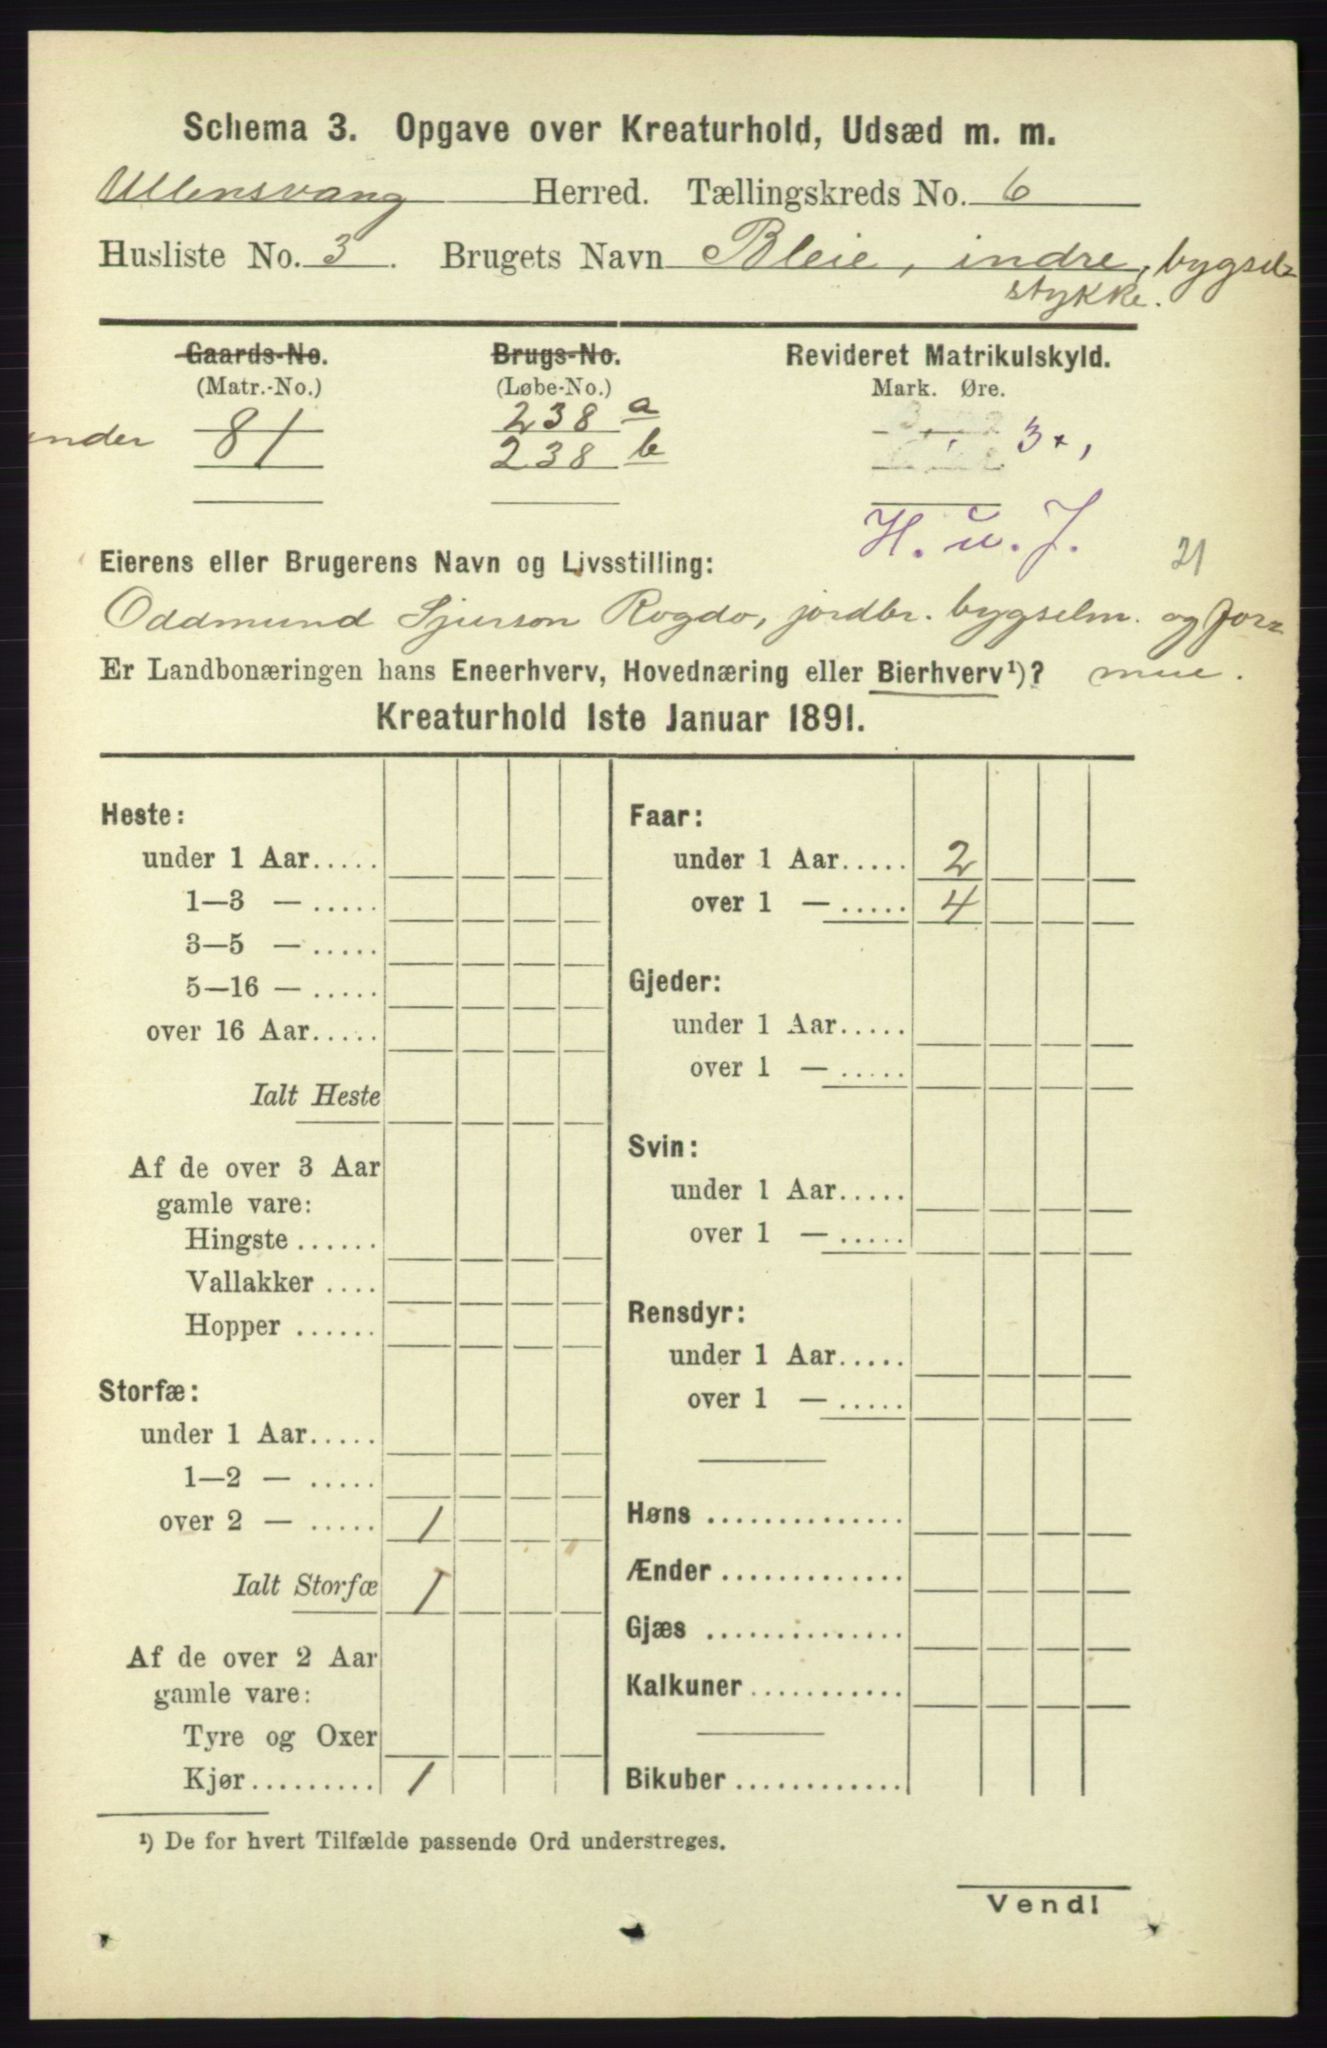 Schema 3. Opgave over Kreaturhold, Udsæd m. m.
Ullensvang Herred. Tællingskreds No. 6
Husliste No. 3. Brugets Navn Bleie, indre, bygsel=
stykke.
Gaards-No. Brugs-No. Revideret Matrikulskyld.
(Matr.-No.) (Løbe-No.) Mark. Øre.
under 81 238 a
238 b 3
H. u. J.
21
Eierens eller Brugerens Navn og Livsstilling:
Oddmund Sjurson Rogdo, jordbr. bygselm. og
Er Landbonæringen hans Eneerhverv, Hovednæring eller Bierhverv¹)?
Kreaturhold 1ste Januar 1891.
Heste:
under 1 Aar.....
1—3 — .....
3—5 — .....
5—16 — .....
over 16 Aar.....
Ialt Heste
Af de over 3 Aar
gamle vare:
Hingste ......
Vallakker ....
Hopper ......
Storfæ:
under 1 Aar.....
1—2 — .....
over 2 — ..... 1
Ialt Storfæ 1
Af de over 2 Aar
gamle vare:
Tyre og Oxer
Kjør......... 1
Faar:
under 1 Aar..... 2
over 1 — ..... 4
Gjeder:
under 1 Aar.....
over 1 — .....
Svin:
under 1 Aar.....
over 1 — .....
Rensdyr:
under 1 Aar.....
over 1 — .....
Høns ..............
Ænder .............
Gjæs ..............
Kalkuner...........
Bikuber ............
¹) De for hvert Tilfælde passende Ord understreges.
Vend!